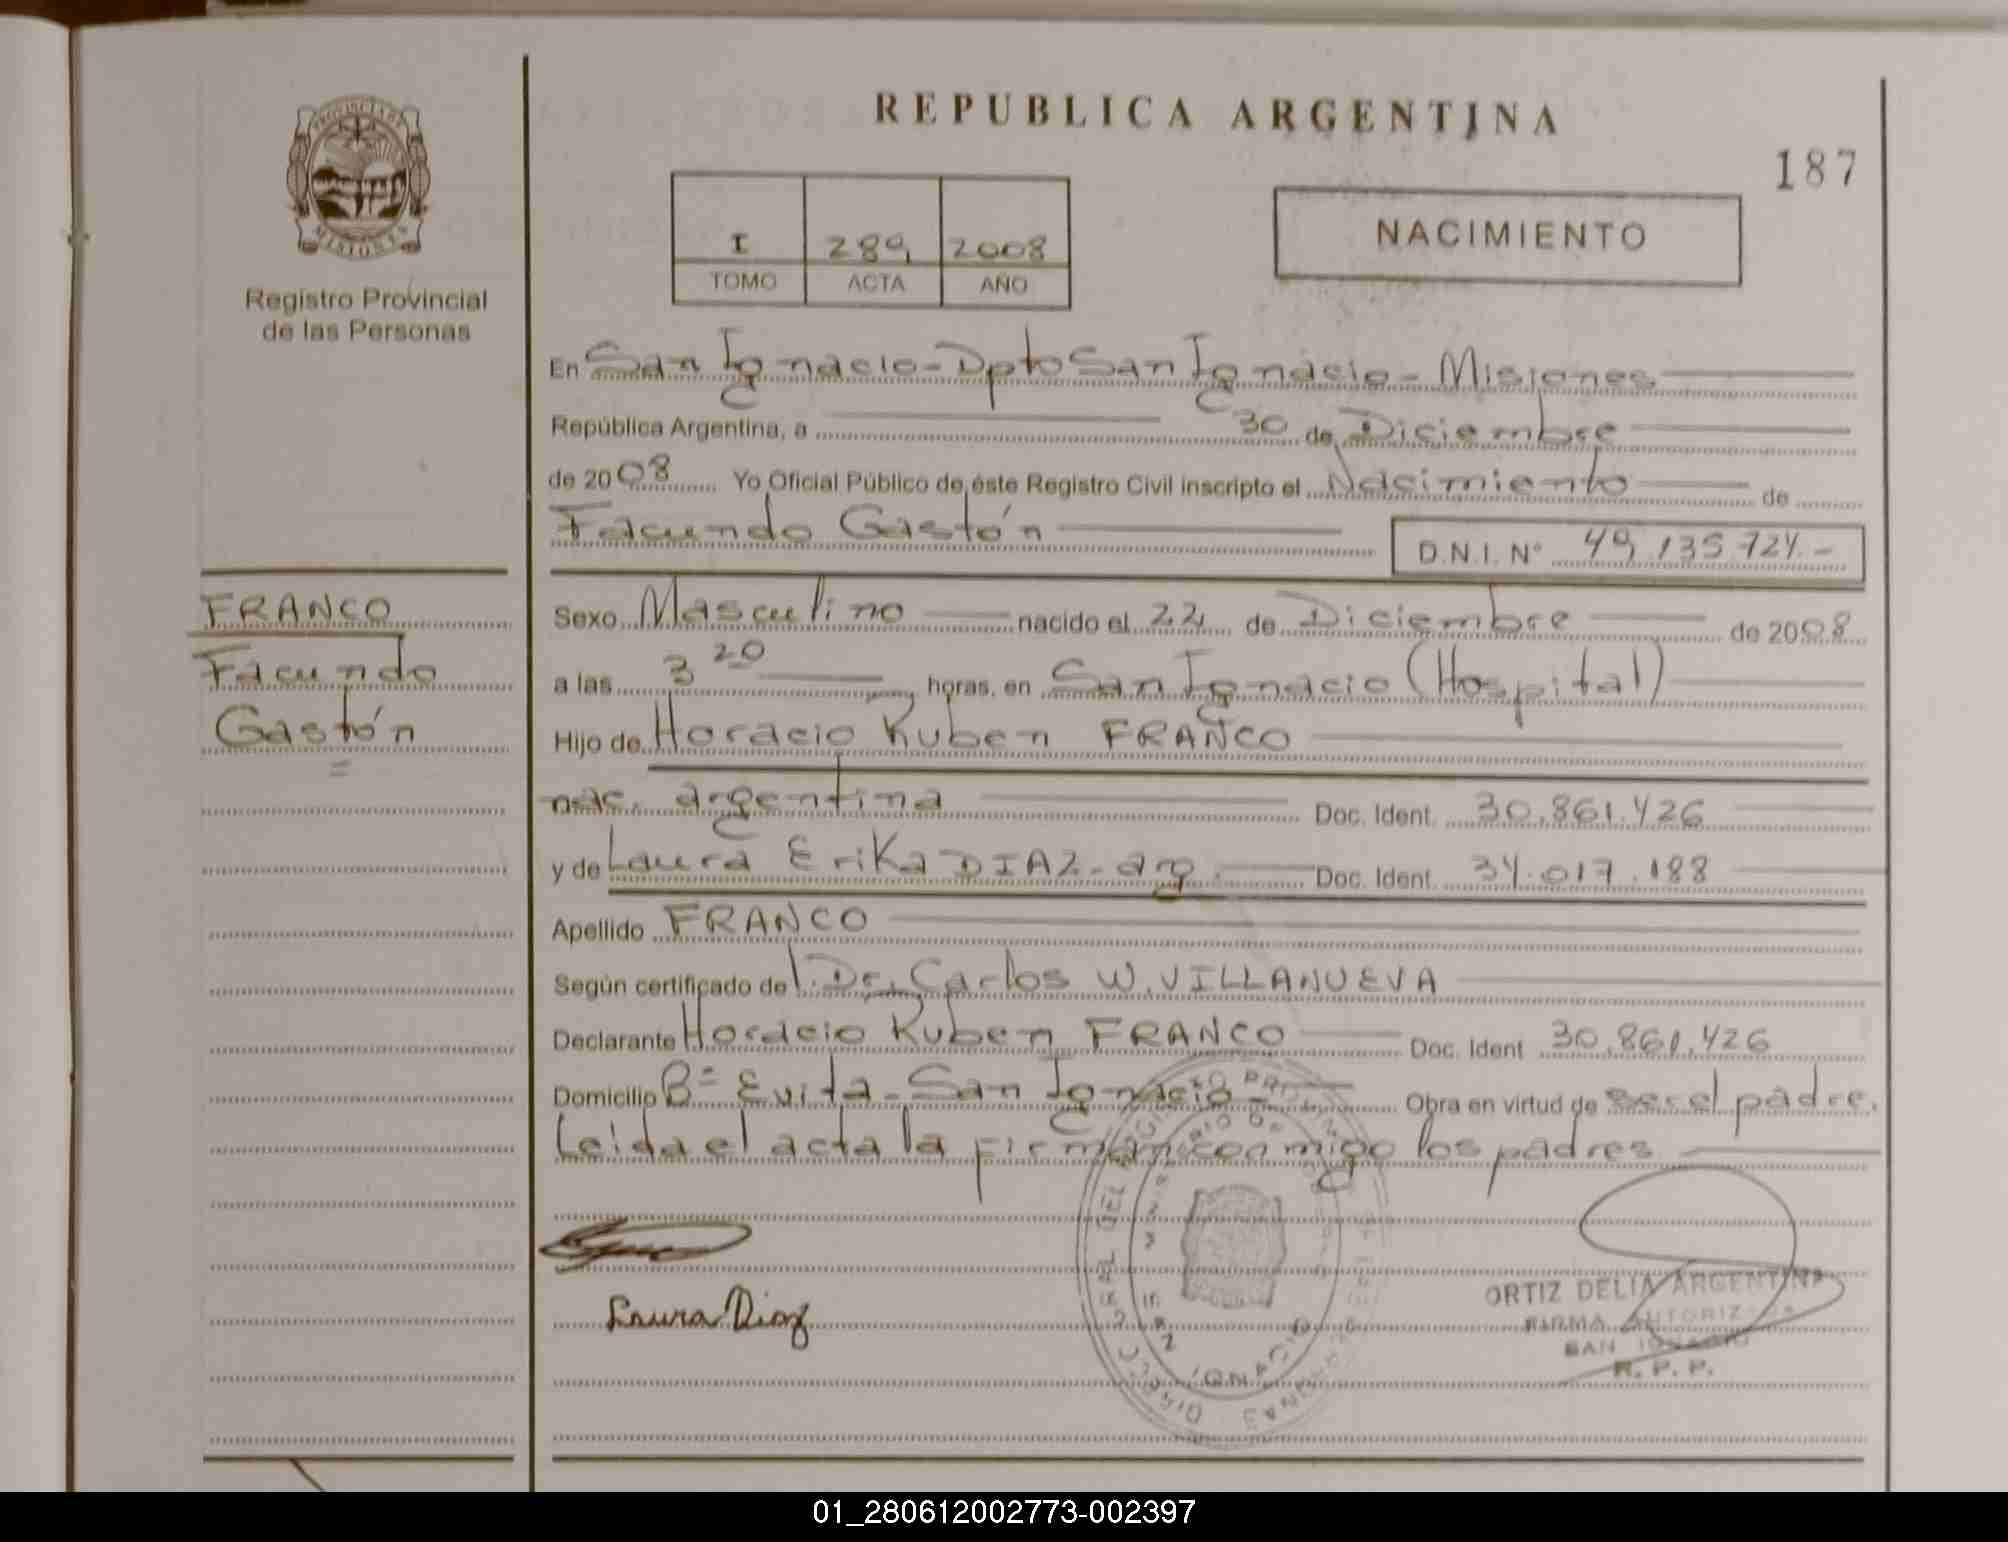 REPUBLICA ARGENTINA
187
PROVINCIA DE
MISIONES
Registro Provincial
de las Personas
I 289 2008
TOMO ACTA AÑO
NACIMIENTO
En San Ignacio-Dpto San Ignacio-Misiones
República Argentina, a 30 de Diciembre
de 2008 Yo Oficial Público de éste Registro Civil inscripto el Nacimiento de
Facundo Gastón D.N.I. Nº 49.135.724.-
FRANCO
Facundo
Gastón
Sexo Masculino nacido el 22 de Diciembre de 2008
a las 3 20 horas. en San Ignacio (Hospital)
Hijo de Horacio Ruben FRANCO
nac. argentina Doc. Ident. 30.861.426
y de Laura Erika DIAZ-arg. Doc. Ident. 34.017.188
Apellido FRANCO
Según certificado de Dr. Carlos W. VILLANUEVA
Declarante Horacio Ruben FRANCO Doc. Ident 30.861.426
Domicilio Bº Evita-San Ignacio Obra en virtud de ser el padre.
Leida el acta la firman conmigo los padres
Laura Diaz
ORTIZ DELIA ARGENTINA
FIRMA AUTORIZADA
SAN IGNACIO
R. P. P.
01_280612002773-002397